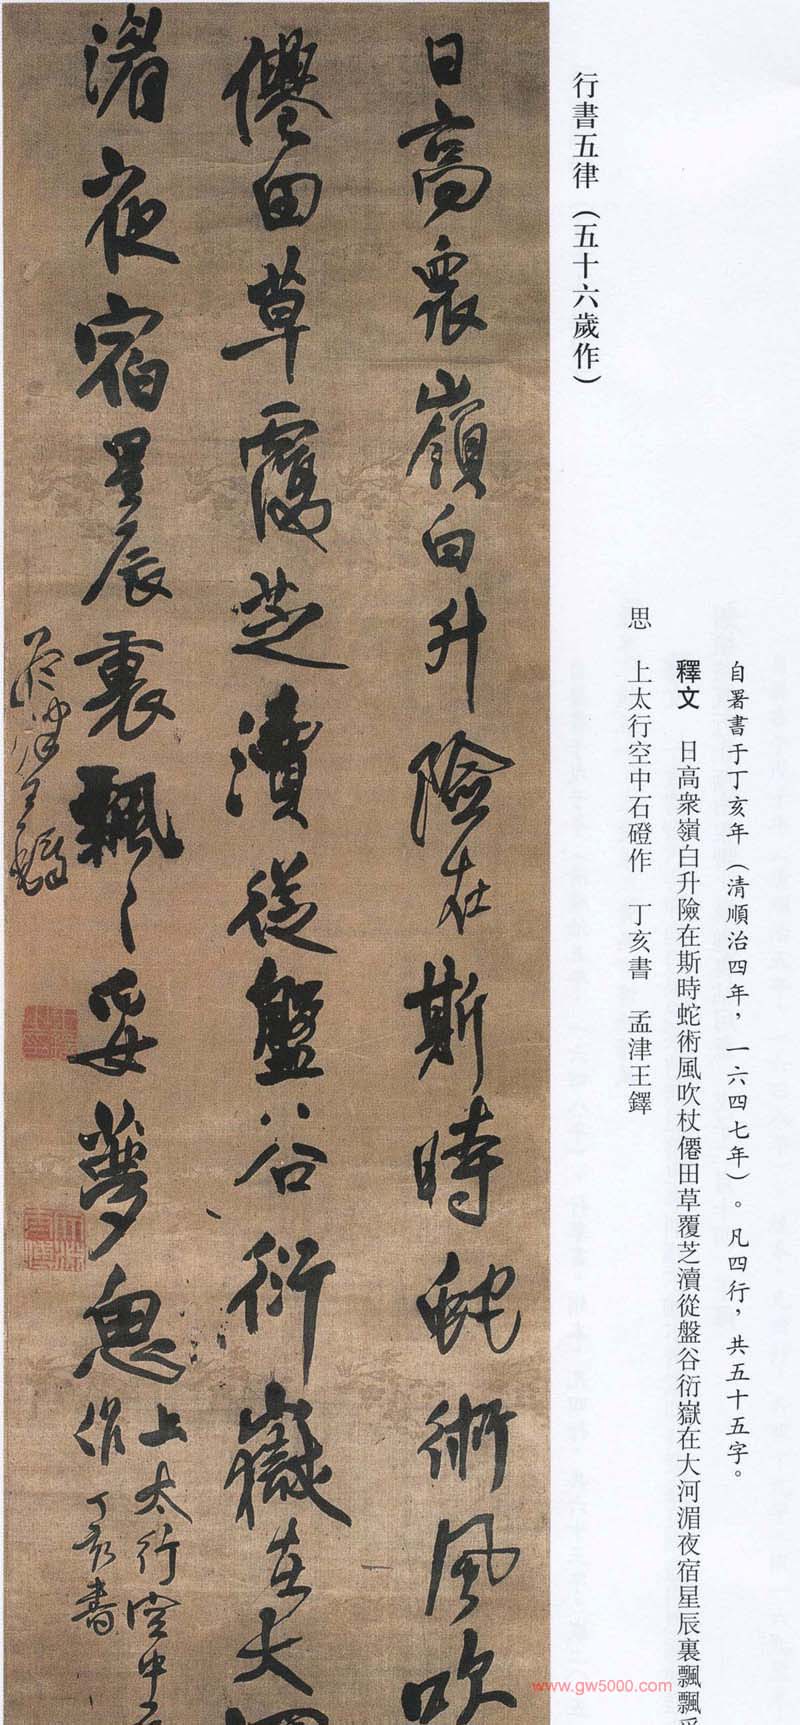 自署書于丁亥年（清順治四年，一六四七年）。凡四行，共五十五字。
釋文 日高衆嶺白升險在斯時蛇術風吹杖僊田草覆芝瀆從盤谷衍嶽在大河湄夜宿星辰裏飄飄
思 上太行空中石磴作 丁亥書 孟津王鐸
行書五律（五十六歲作）
日高衆嶺白升險在斯時蛇術風吹
僊田草覆芝瀆從盤谷衍嶽在大
湄夜宿星辰裏飄〻妥夢思
上太行空中
作丁亥書
孟津王鐸
www.gw5000.com